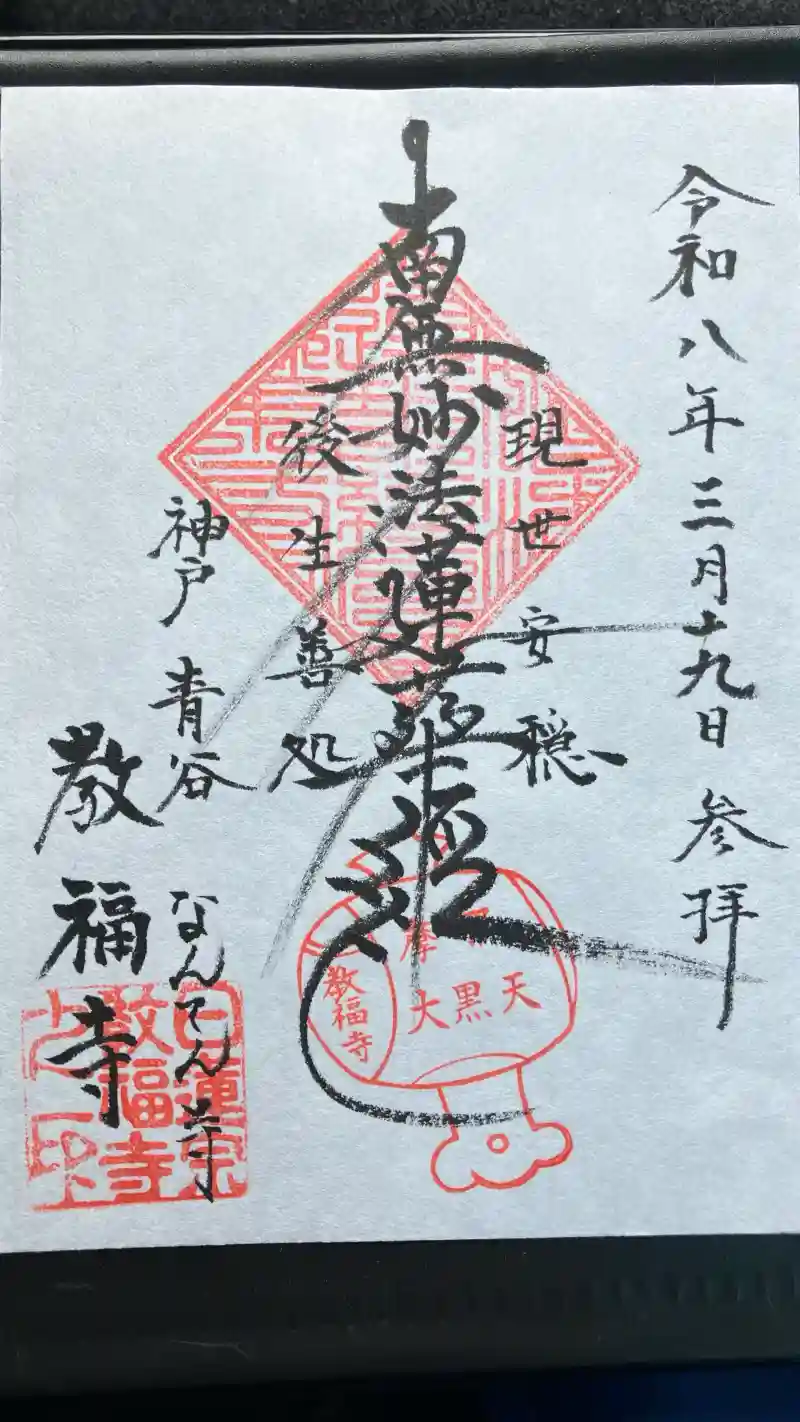 令和八年三月十九日 参拝
現世安穏
南無妙法蓮華経
後生善処
神戸 青谷
なんてん寺
教福寺
大黒天
教福寺
日蓮宗
教福寺
之印